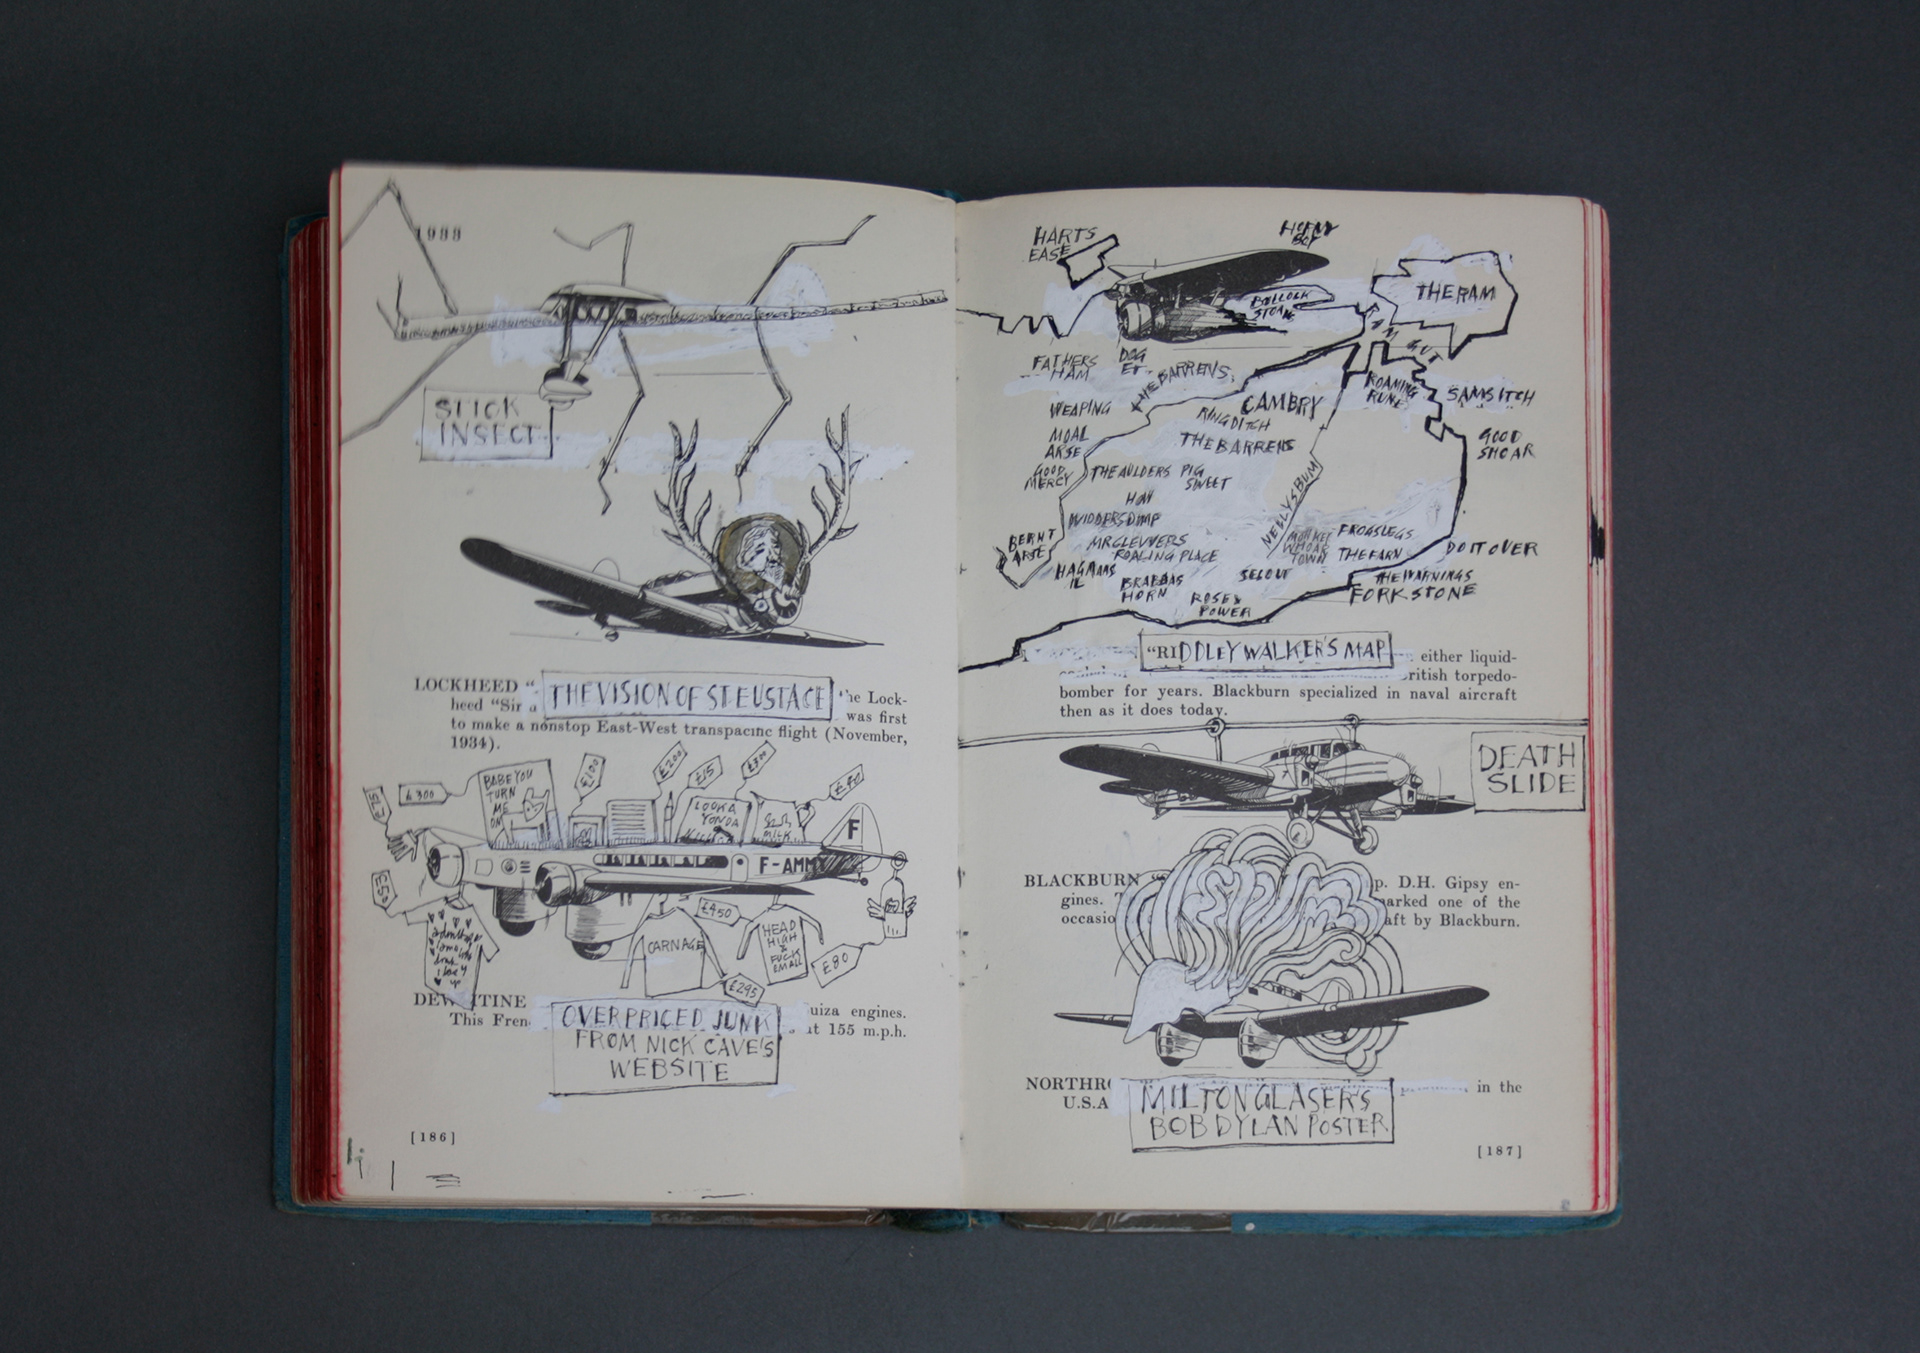 1933
STICK
INSECT
LOCKHEED "
THE VISION OF ST EUSTACE
he Lock-
heed "Sir
was first
to make a nonstop East-West transpacific flight (November,
1934).
BABE YOU
TURN
ME
ON
£300
£75
£100
£200
£15
£50
LOOKA
YONDA
MILK
F
F-AMM
£450
CARNAGE
HEAD
HIGH
&
FUCK
SMALL
£80
£295
DEW ITINE
This Fren
uiza engines.
at 155 m.p.h.
OVERPRICED JUNK
FROM NICK CAVE'S
WEBSITE
[186]
HARTS
EASE
HORNY
BOY
BULLOCK
STOAN
THE RAM
FATHERS
HAM
DOG
ET
THE BARRENS
ROAMING
RUNE
SAMS ITCH
WEAPING
CAMBRY
RING DITCH
MOAL
ARSE
THE BARRENS
GOOD
SHOAR
GOOD
MERCY
THE AULDERS
PIG
SWEET
HOW
WIDDERS DUMP
NELLYS BUM
BERNT
ARSE
MR CLEVVERS
ROALING PLACE
MONKEY
WHOAR
TOWN
FROGS LEGS
THE FARN
DO IT OVER
HAGMANS
IL
BRABBAS
HORN
SEL OUT
THE WARNINGS
FORK STONE
ROSE &
POWER
"RIDDLEY WALKER'S MAP
either liquid-
British torpedo-
bomber for years. Blackburn specialized in naval aircraft
then as it does today.
DEATH
SLIDE
BLACKBURN "
p. D.H. Gipsy en-
gines. T
marked one of the
occasio
aft by Blackburn.
NORTHR
in the
U.S.A
MILTON GLASER'S
BOB DYLAN POSTER
[187]